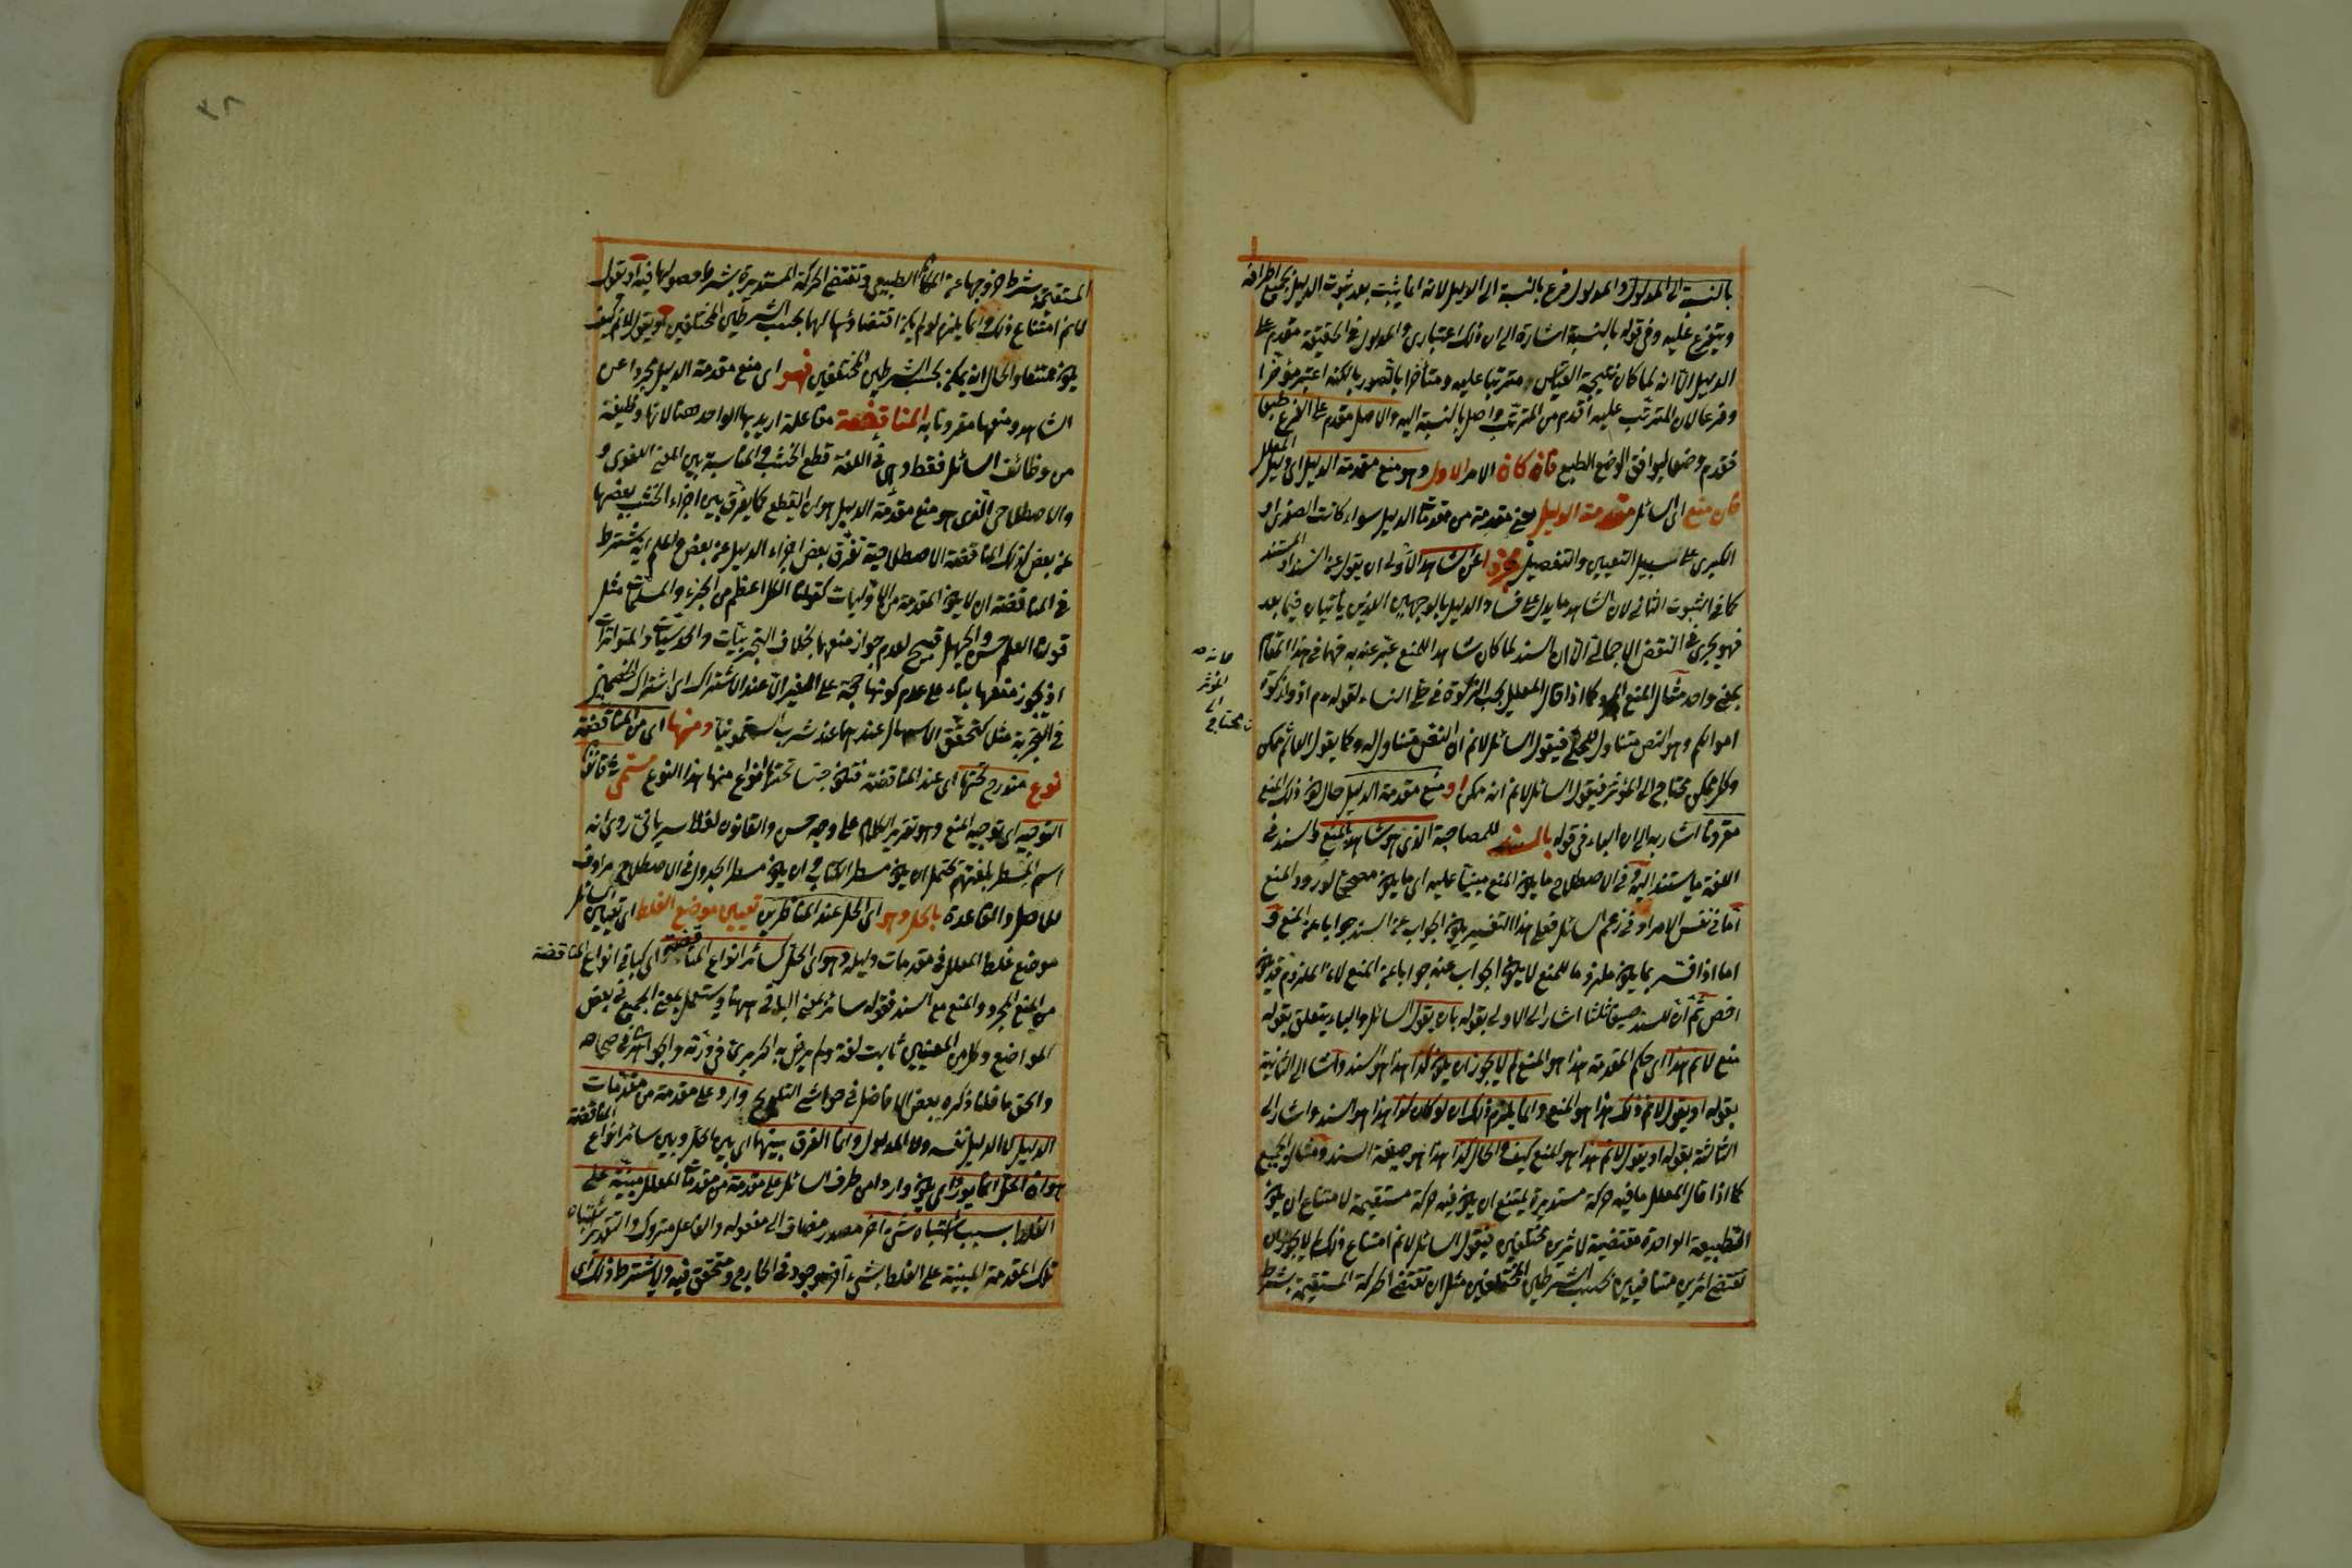 بالنسبة الى المدلول والمدلول فرع بالنسبة الى الدليل لانه انما يثبت بعد ثبوت الدليل بجميع اطرافه
ويتفرع عليه وفى قوله بالنسبة اشارة الى ان ذلك اعتبارى والمدلول فى الحقيقة مقدم على
الدليل الا انه لما كان نتيجة القياس ومترتبا عليه ومتأخرا بالتصور بالكنه اعتبر مؤخرا
وفرعا لان المترتب عليه اقدم من المترتب واصل بالنسبة اليه والاصل مقدم على الفرع طبعا
فقدم وضعا ليوافق الوضع الطبع فان كان الامر الاول وهو منع مقدمة الدليل اى دليل المعلل
فان منع اى السائل مقدمة الدليل يعنى مقدمة من مقدمات الدليل سواء كانت الصغرى او
الكبرى على سبيل التعيين والتفصيل مجردا عن الشاهد الاولى ان يقول عن السند او المستند
كما فى الثبوت الثانى لان الشاهد ما يدل على فساد الدليل بالوجهين اللذين يأتيان فيما بعد
فهو يجرى فى النقض الاجمالى الا ان السند لما كان شاهدا للمنع عبر عنه به فهما فى هذا المقام
بمعنى واحد مثال المنع المجرد كما اذا قال المعلل يجب الزكوة فى حلى النساء لقوله عم ادوا زكوة
اموالكم وهو النص متناول للحلى فيقول السائل لانم ان النص متناول له وكما يقول العالم ممكن
وكل ممكن محتاج الى المؤثر فيقول السائل لانم انه ممكن او منع مقدمة الدليل حال كون ذلك المنع
مقرونا اشار به الى ان الباء فى قوله بالسند للمصاحبة الذى هو شاهد المنع والسند فى
اللغة ما يستند اليه وفى الاصطلاح ما يكون المنع مبنيا عليه اى ما يكون مصححا لورود المنع
اما فى نفس الامر او فى زعم السائل فعلى هذا التفسير يكون الجواب عن السند جوابا عن المنع و
اما اذا فسر بما يكون ملزوما للمنع لا يكون الجواب عنه جوابا عن المنع لان الملزوم قد يكون
اخص ثم ان للسند صيغا ثلثا اشار الى الاولى بقوله بان يقول السائل والباء يتعلق بقوله
منع لانم هذا اى حكم المقدمة هذا هو المنع لم لا يجوز ان يكون كذا هذا هو السند واشار الى الثانية
بقوله او يقول لانم ذلك هذا هو المنع وانما يلزم ذلك ان لو كان كذا هذا هو السند واشار الى
الثالثة بقوله او يقول لانم هذا هو المنع كيف والحال كذا هذا هو صيغة السند ومثال الجميع
كما اذا قال المعلل ما فيه حركة مستديرة يمتنع ان يكون فيه حركة مستقيمة لامتناع ان يكون
الطبيعة الواحدة مقتضية لاثرين مختلفين فيقول السائل لانم امتناع ذلك لم لا يجوز ان
تقتضى اثرين متنافيين بحسب الشرطين المختلفين مثل ان تقتضى الحركة المستقيمة بشرط
المؤثر
محتاج
المستقيمة بشرط خروجها عن المكان الطبيعى وتقتضى الحركة المستديرة بشرط حصولها فيه او يقول
لانم امتناع ذلك وانما يلزم لو لم يكن اقتضاؤها لهما بحسب الشرطين المختلفين او يقول لانم كيف
يكون ممتنعا والحال انه يمكن بحسب الشرطين المختلفين فهو اى منع مقدمة الدليل مجردا عن
الشاهد ومنعها مقرونا به المناقضة مفاعلة اريد بها الواحد ههنا لانها وظيفة
من وظائف السائل فقط وهى فى اللغة قطع الخشب والمناسبة بين المعنى اللغوى و
والاصطلاحى الذى هو منع مقدمة الدليل هو ان القطع كما يفرق بين اجزاء الخشب بعضها
عن بعض كذلك المناقضة الاصطلاحية تفرق بعض اجزاء الدليل عن بعض واعلم انه يشترط
فى المناقضة ان لا يكون المقدمة من الاوليات كقولنا الكل اعظم من الجزء والمسلمات مثل
قولنا العلم حسن والجهل قبيح لعدم جواز منعهما بخلاف التجربيات والحدسيات والمتواترات
اذ يجوز منعها بناء على عدم كونها حجة على الغير الا عند الاشتراك اى اشتراك الخصمين
فى التجربة مثل تحقق الاسهال عندهما عند شرب السقمونيا ومنها اى من المناقضة
نوع مندرج تحتها اى عند المناقضة فتكون جنسا تحتها انواع منها هذا النوع مسمى فى قانون
التوجيه اى توجيه المنع وهو تقرير الكلام على وجه حسن والقانون لفظ سريانى روى انه
اسم المسطر بلغتهم يحتمل ان يكون مسطر الكتاب وان يكون مسطر الجدول فى الاصطلاح مرادف
للاصل والقاعدة بالحل وهو اى الحل عند المناظرين تعيين موضع الغلط اى تعيين السائل
موضع غلط المعلل فى مقدمات دليله وهو اى الحل كسائر انواع المناقضة اى كباقى انواع المناقضة
من المنع المجرد والمنع مع السند فقوله سائر بمعنى الباقى ههنا ويستعمل بمعنى الجميع فى بعض
المواضع وكلا من المعنيين ثابت لغة ولم يرض به الحريرى فى درّته والجواهرى فى صحاحه
والحق ما قلنا ذكره بعض الافاضل فى حواشى التلويح وارد على مقدمة من مقدمات
الدليل لا الدليل نفسه ولا المدلول وانما الفرق بينهما اى بين الحل وبين سائر انواع المناقضة
هو ان الحل انما يورد اى يكون واردا من طرف السائل على مقدمة من مقدمات المعلل مبنية على
الغلط بسبب اشتباه شىء آخر مصدر مضاف الى مفعوله والفاعل متروك والتقدير اشتباه
تلك المقدمة المبنية على الغلط بشىء آخر موجود فى الخارج ومتحقق فيه ولا يشترط ذلك اى
٣٨